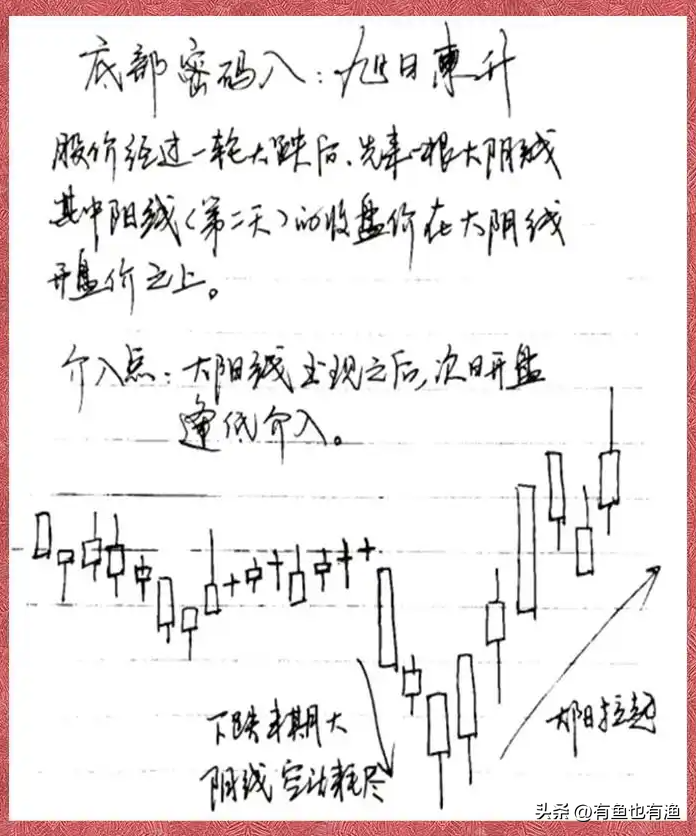 底部密码八：旭日東升
股价经过一轮大跌后、先来一根大阴线
其中阳线（第二天）的收盘价在大阴线
开盘价之上。
介入点：大阳线出现之后，次日开盘
逢低介入。
下跌末期大
阴线空头耗尽
大阳拉起
头条 @有鱼也有渔